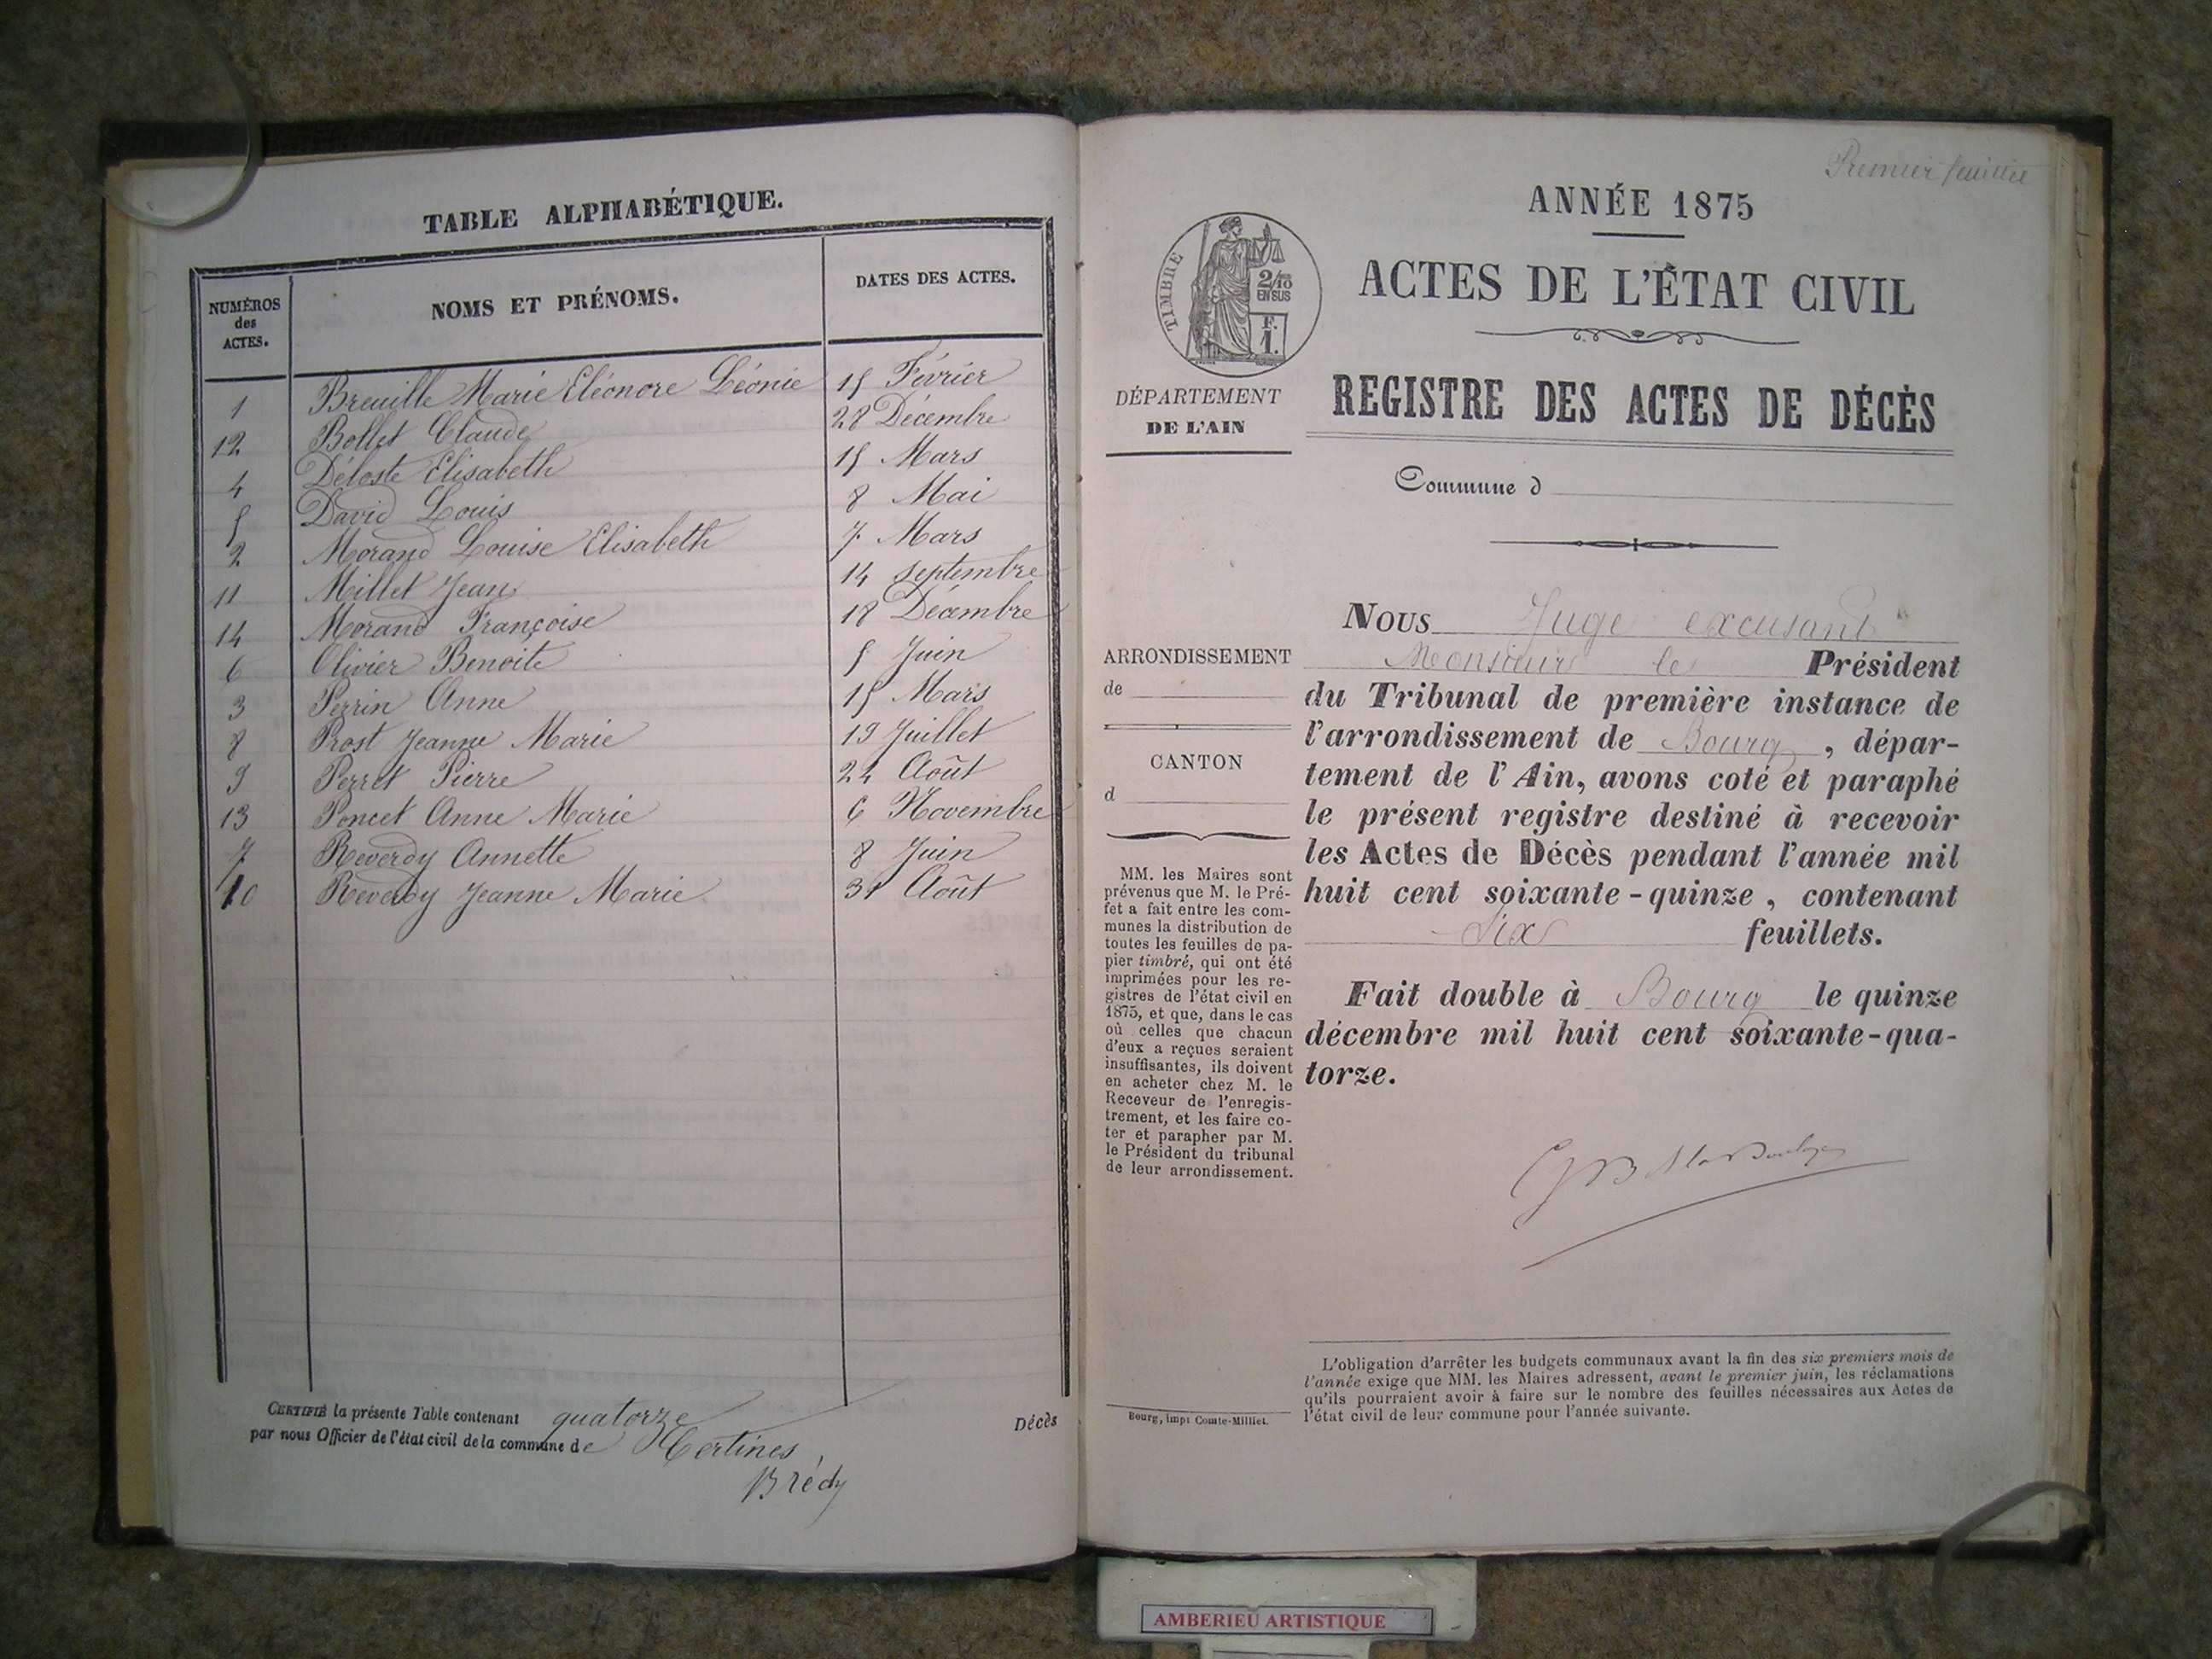 TABLE ALPHABÉTIQUE.
NUMÉROS des ACTES. NOMS ET PRÉNOMS. DATES DES ACTES.
1 Breuille Marie Eléonore Léonie 15 Février
12 Bollet Claude 28 Décembre
4 Déloste Elisabeth 15 Mars
5 David Louis 8 Mai
2 Morand Louise Elisabeth 7 Mars
11 Millet Jean 14 septembre
14 Morand Françoise 18 Décembre
6 Olivier Benoite 5 Juin
3 Perrin Anne 15 Mars
8 Prost Jeanne Marie 19 Juillet
9 Perret Pierre 22 Août
13 Poncet Anne Marie 6 Novembre
7 Reverdy Annette 8 Juin
10 Reverdy Jeanne Marie 31 Août
CERTIFIÉ la présente Table contenant quatorze Décès
par nous Officier de l'état civil de la commune de Certines
Brédy
Premier feuillet
ANNÉE 1875
ACTES DE L'ÉTAT CIVIL
REGISTRE DES ACTES DE DÉCÈS
TIMBRE
2/10
EN SUS
F.
1.
DÉPARTEMENT
DE L'AIN
Commune d
ARRONDISSEMENT
de
CANTON
d
MM. les Maires sont
prévenus que M. le Pré-
fet a fait entre les com-
munes la distribution de
toutes les feuilles de pa-
pier timbré, qui ont été
imprimées pour les re-
gistres de l'état civil en
1875, et que, dans le cas
où celles que chacun
d'eux a reçues seraient
insuffisantes, ils doivent
en acheter chez M. le
Receveur de l'enregis-
trement, et les faire co-
ter et parapher par M.
le Président du tribunal
de leur arrondissement.
Bourg, imp. Comte-Milliet.
NOUS Juge excusant
Monsieur le Président
du Tribunal de première instance de
l'arrondissement de Bourg, dépar-
tement de l'Ain, avons coté et paraphé
le présent registre destiné à recevoir
les Actes de Décès pendant l'année mil
huit cent soixante-quinze, contenant
six feuillets.
Fait double à Bourg le quinze
décembre mil huit cent soixante-qua-
torze.
L'obligation d'arrêter les budgets communaux avant la fin des six premiers mois de
l'année exige que MM. les Maires adressent, avant le premier juin, les réclamations
qu'ils pourraient avoir à faire sur le nombre des feuilles nécessaires aux Actes de
l'état civil de leur commune pour l'année suivante.
AMBERIEU ARTISTIQUE